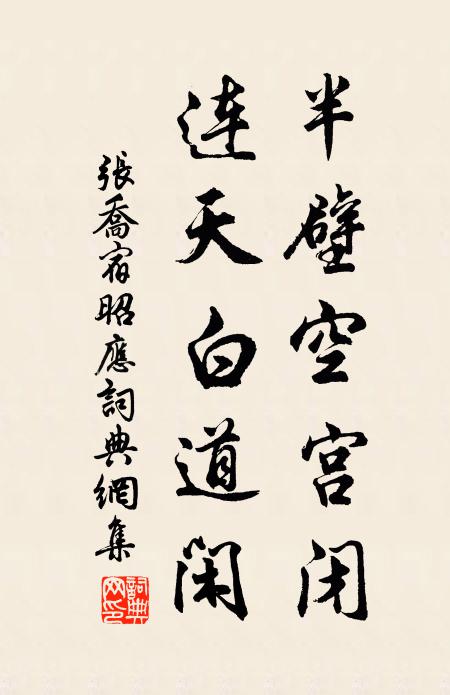 半壁空宫闭
連天白道闲
張喬宿昭應詞典網集
詞典網印